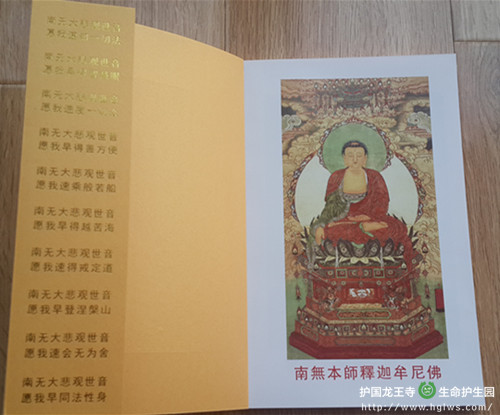 南无大悲观世音
愿我速知一切法
南无大悲观世音
愿我早得智慧眼
南无大悲观世音
愿我速度一切众
南无大悲观世音
愿我早得善方便
南无大悲观世音
愿我速乘般若船
南无大悲观世音
愿我早得越苦海
南无大悲观世音
愿我速得戒定道
南无大悲观世音
愿我早登涅槃山
南无大悲观世音
愿我速会无为舍
南无大悲观世音
愿我早同法性身
南無本師釋迦牟尼佛
护国龙王寺 生命护生园
www.hglws.com